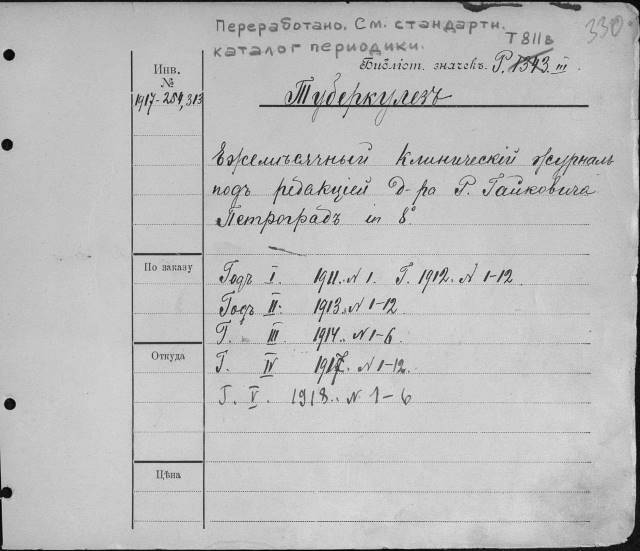 Переработано. См. стандартн.
каталог периодики.
330
Т 811в
Библіот. значекъ. Р. 1343. III
Инв.
№
1917-254,313
Туберкулезъ
Ежемѣсячный Клиническій журналъ
подъ редакціей д-ра Р. Гайковича
Петроградъ in 8°
По заказу
Годъ I. 1911. N 1. Г. 1912. N 1-12
Годъ II. 1913. N 1-12
Г. III 1914. N 1-6
Откуда
Г. IV 1917. N 1-12.
Г. V. 1918. N 1-6
Цѣна